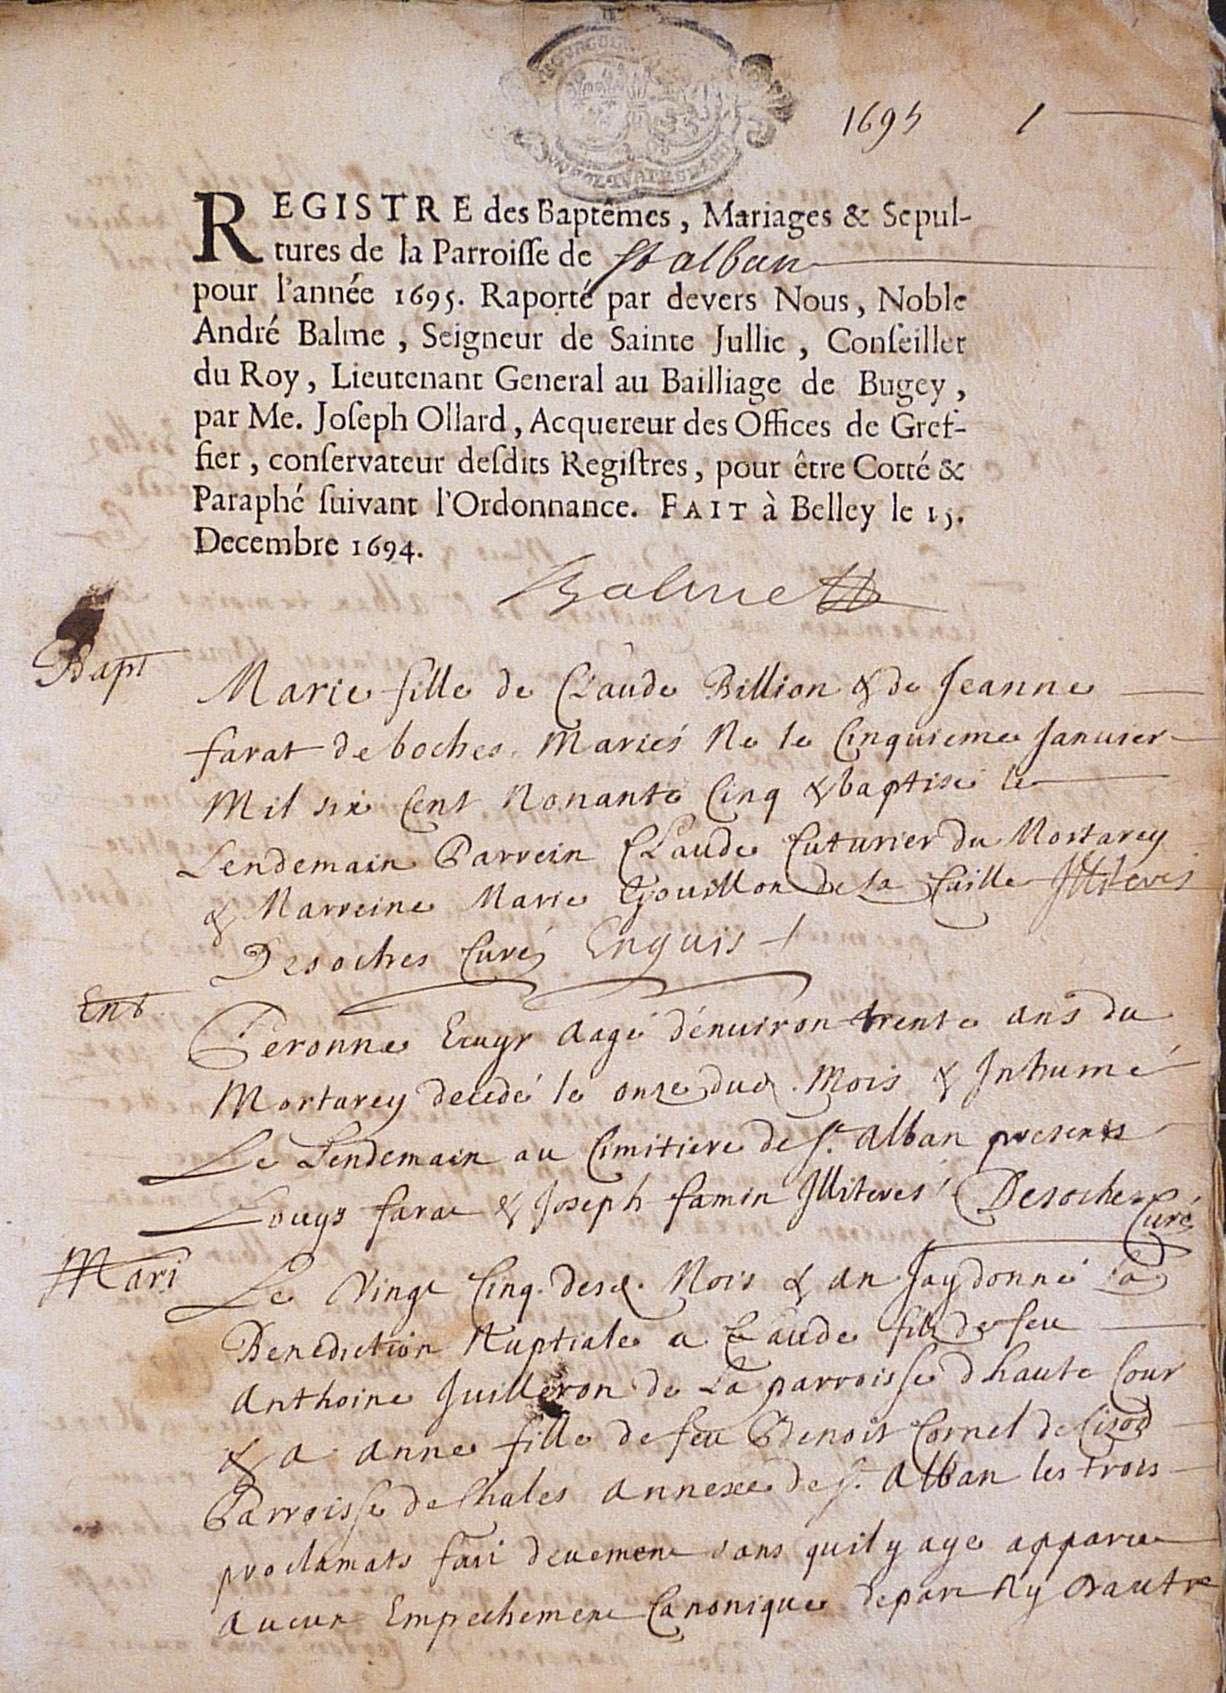 1695 1
REGISTRE des Baptêmes, Mariages & Sepul-
tures de la Parroisse de St alban
pour l'année 1695. Raporté par devers Nous, Noble
André Balme, Seigneur de Sainte Jullie, Conseiller
du Roy, Lieutenant General au Bailliage de Bugey,
par Me. Joseph Ollard, Acquereur des Offices de Gref-
fier, conservateur desdits Registres, pour être Cotté &
Paraphé suivant l'Ordonnance. FAIT à Belley le 15.
Decembre 1694.
Balme
Bapt
Marie fille de Claude Billion & de Jeanne
farat de boches Mariés Ne le Cinquieme Januier
Mil six Cent Nonante Cinq & baptisé le
Lendemain Parrein Claude Cuturier du Mortarey
& Marreine Marie Gouillon de la Cuille Illiterés
Desoches Curé Enquis
Ent
Peronne Ecuyr aagé d'enuiron trente ans du
Mortarey decedé le onze dud. Mois & Inhumé
Le Lendemain au Cimitiere de St. Alban presents
Louys farat & Joseph famin Illiterés Desoches
Curé
Mari
Le Vingt Cinq desd. Mois & an Jay donné la
Benediction Nuptiale a Claude fils de feu
Anthoine Juilleron de La parroisse d haute Cour
& a anne fille de feu Benoit Cornet de
Parroisse de Chales annexe de St. Alban les trois
proclamats fait deuement sans quil y aye apparu
aucun Empechement Canonique de part Ny d'autre